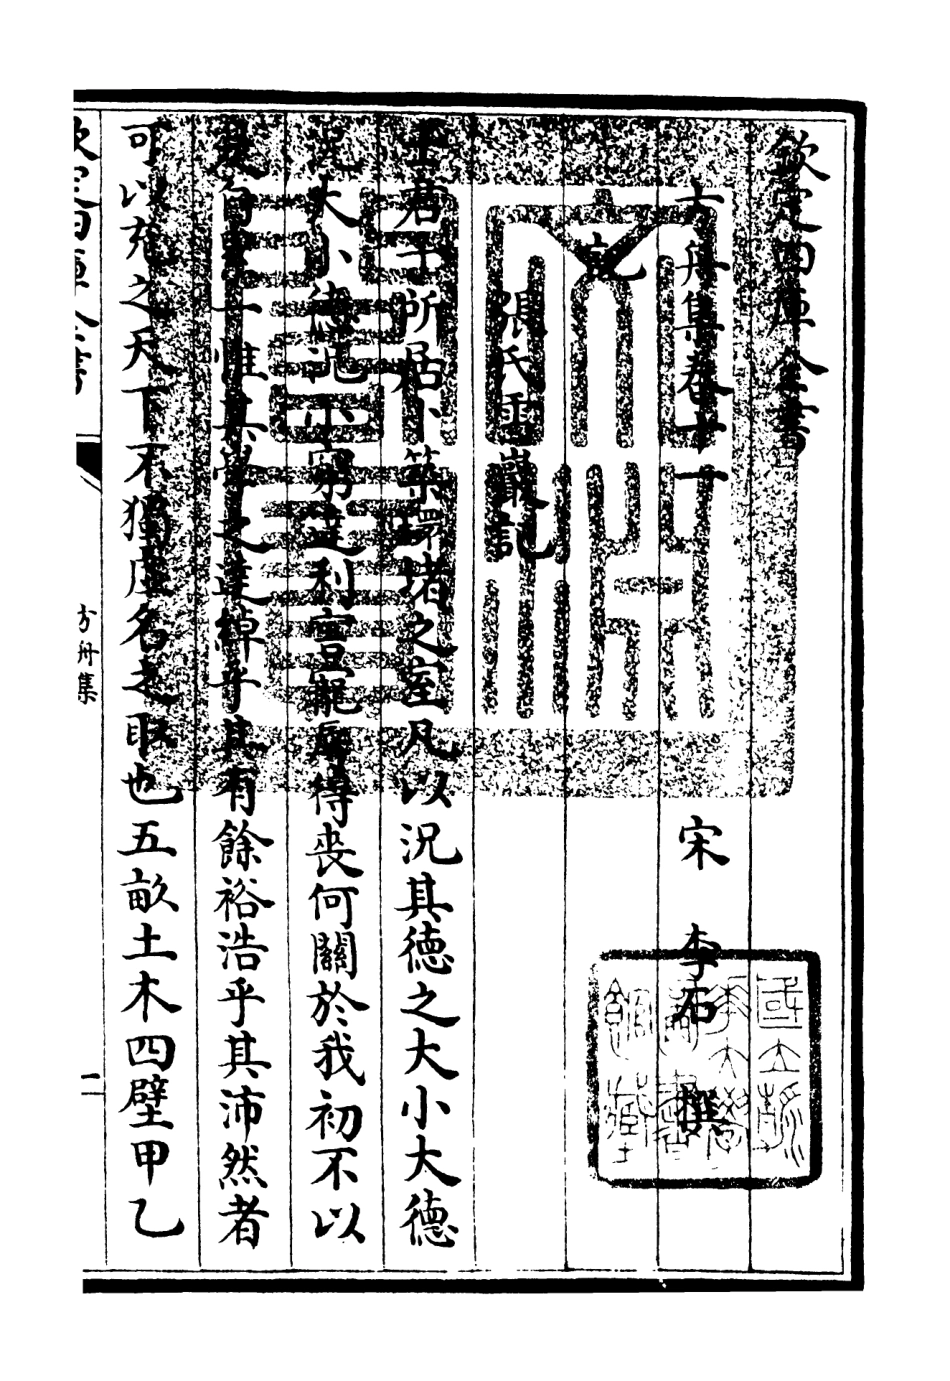 欽定四庫全書
方舟集卷十一
宋 李石 撰
記
張氏巖記
士君子所居卜築環堵之室凡以況其德之大小大德
況大小德況小窮達利害寵辱得喪何關於我初不以
自一惟其學之達綽乎其有餘裕浩乎其沛然者
可以充之天下不獨虛名之取也五畝土木四壁甲乙
欽定四庫全書
方舟集
二